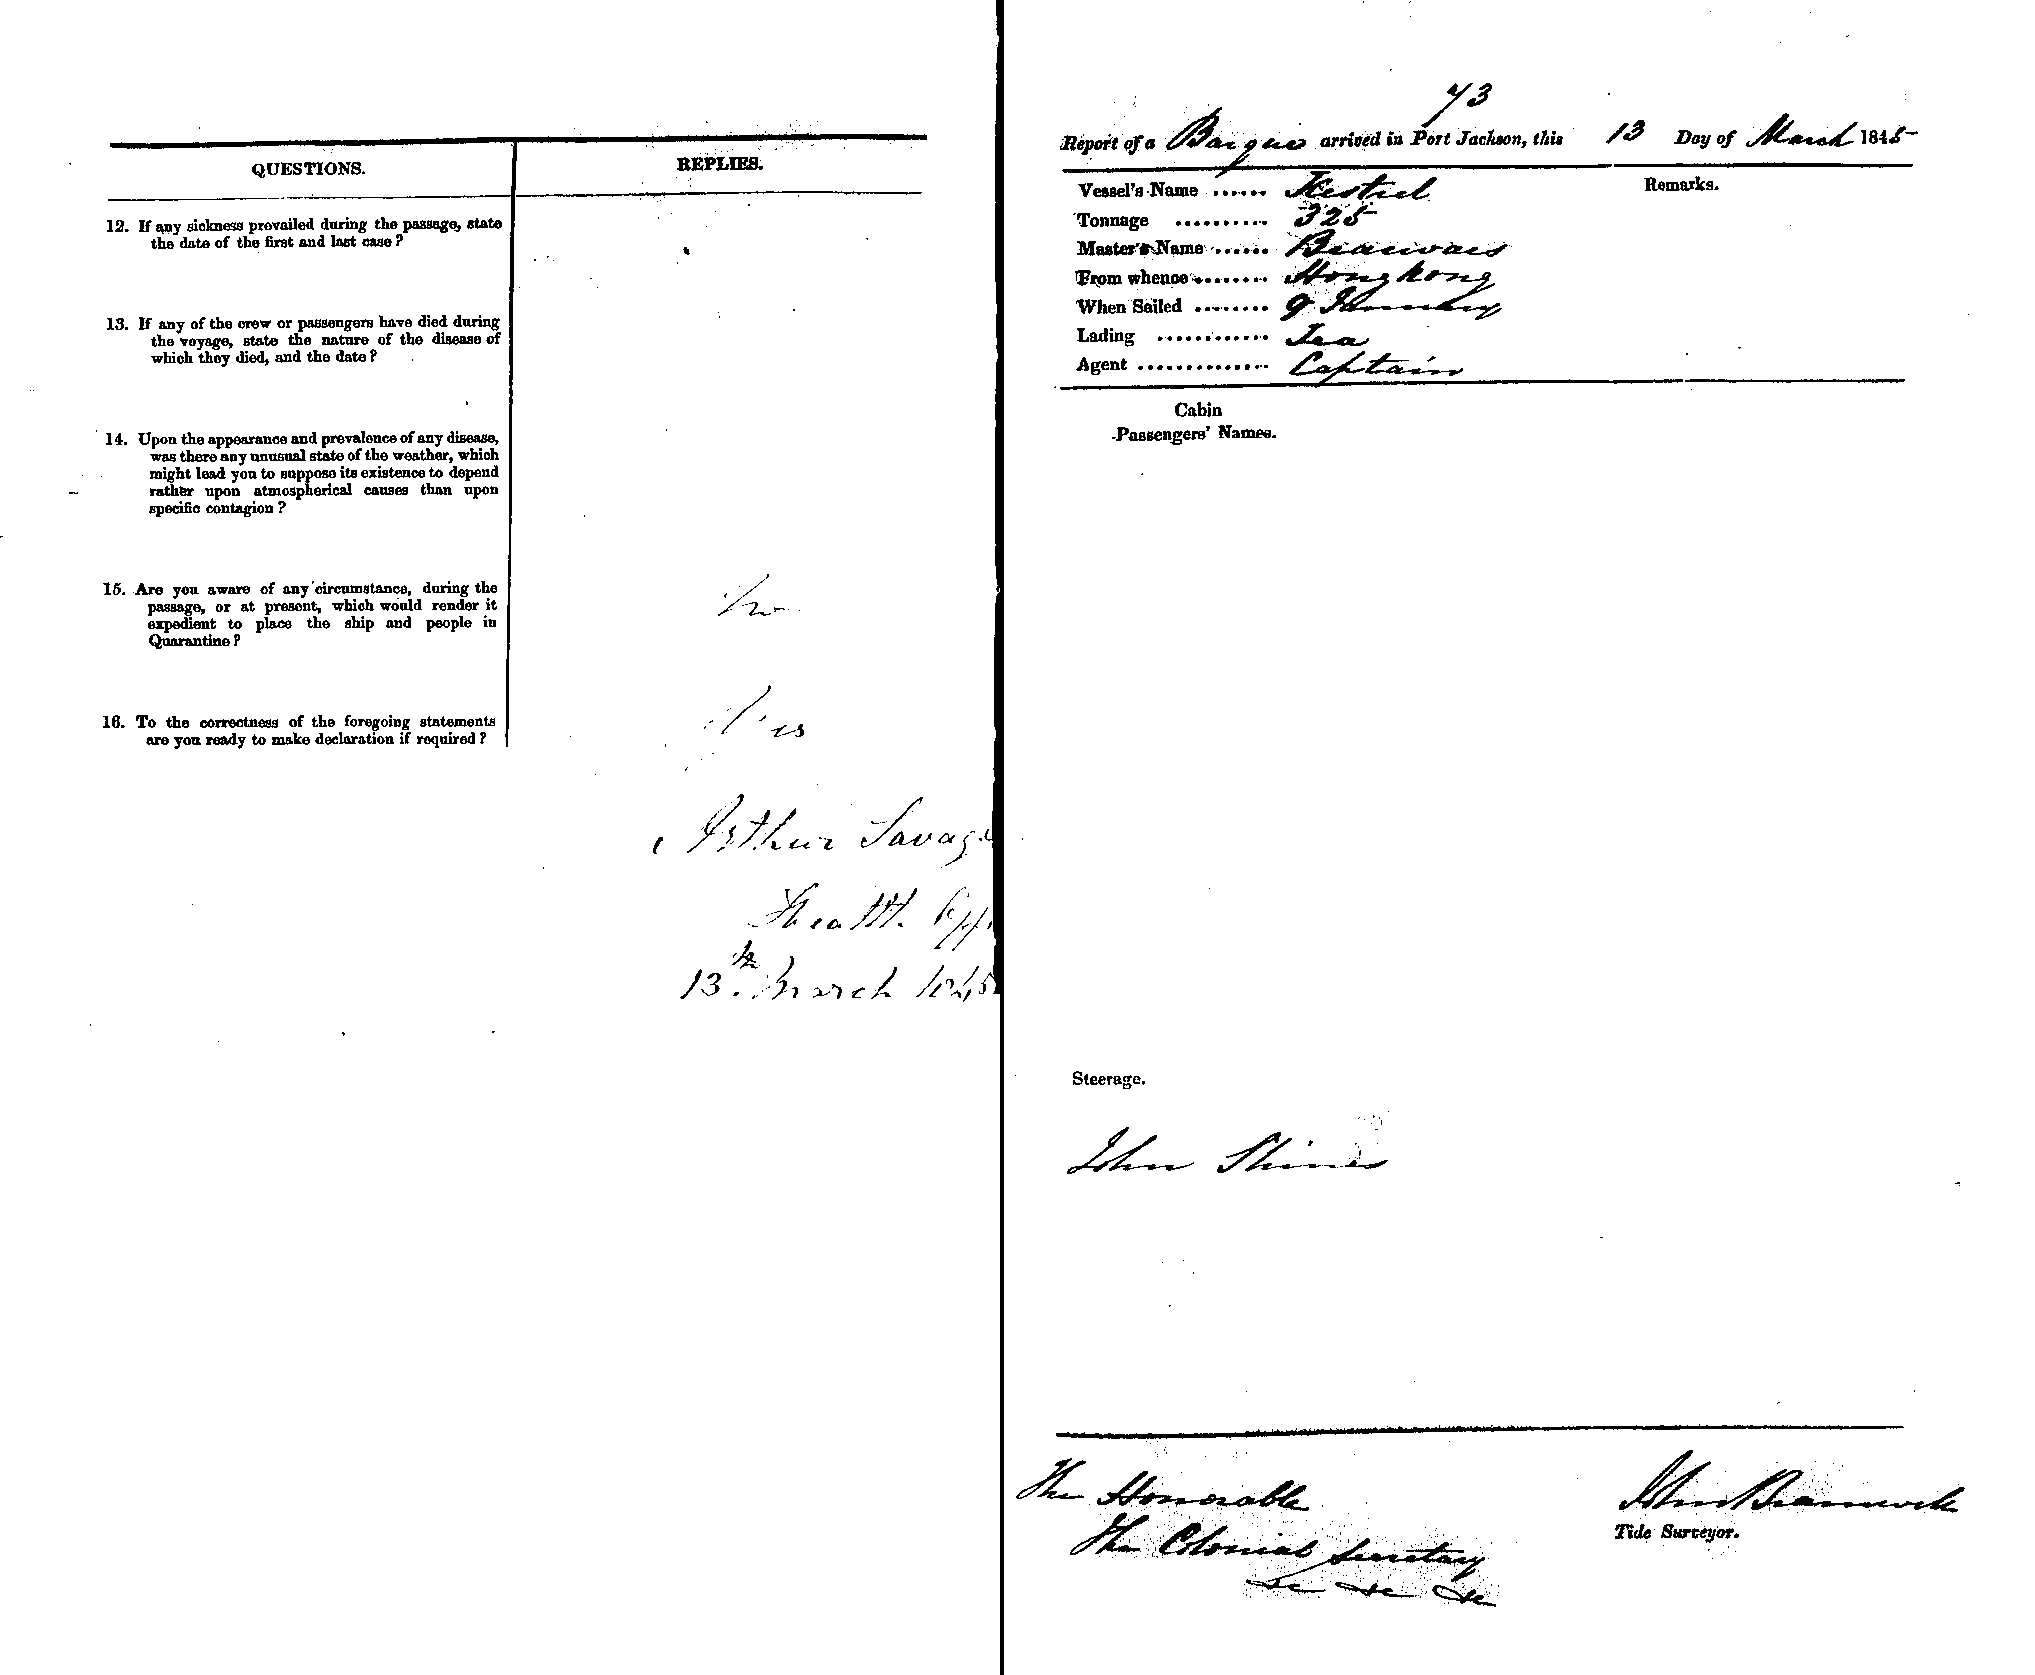 QUESTIONS.
REPLIES.
12. If any sickness prevailed during the passage, state
the date of the first and last case ?
13. If any of the crew or passengers have died during
the voyage, state the nature of the disease of
which they died, and the date ?
14. Upon the appearance and prevalence of any disease,
was there any unusual state of the weather, which
might lead you to suppose its existence to depend
rather upon atmospherical causes than upon
specific contagion ?
15. Are you aware of any circumstance, during the
passage, or at present, which would render it
expedient to place the ship and people in
Quarantine ?
No
16. To the correctness of the foregoing statements
are you ready to make declaration if required ?
Yes
Arthur Savage
Health Off
13th March 1845
73
Report of a Barque arrived in Port Jackson, this 13 Day of March 1845
Remarks.
Vessel's Name ...... Kestrel
Tonnage .......... 325
Master's Name ...... Beauvais
From whence ........ Hong kong
When Sailed ........ 9 January
Lading ............ Tea
Agent .............. Captain
Cabin
Passengers' Names.
Steerage.
John
The Honorable
The Colonial Secretary
&c &c &c
John Bramwell
Tide Surveyor.